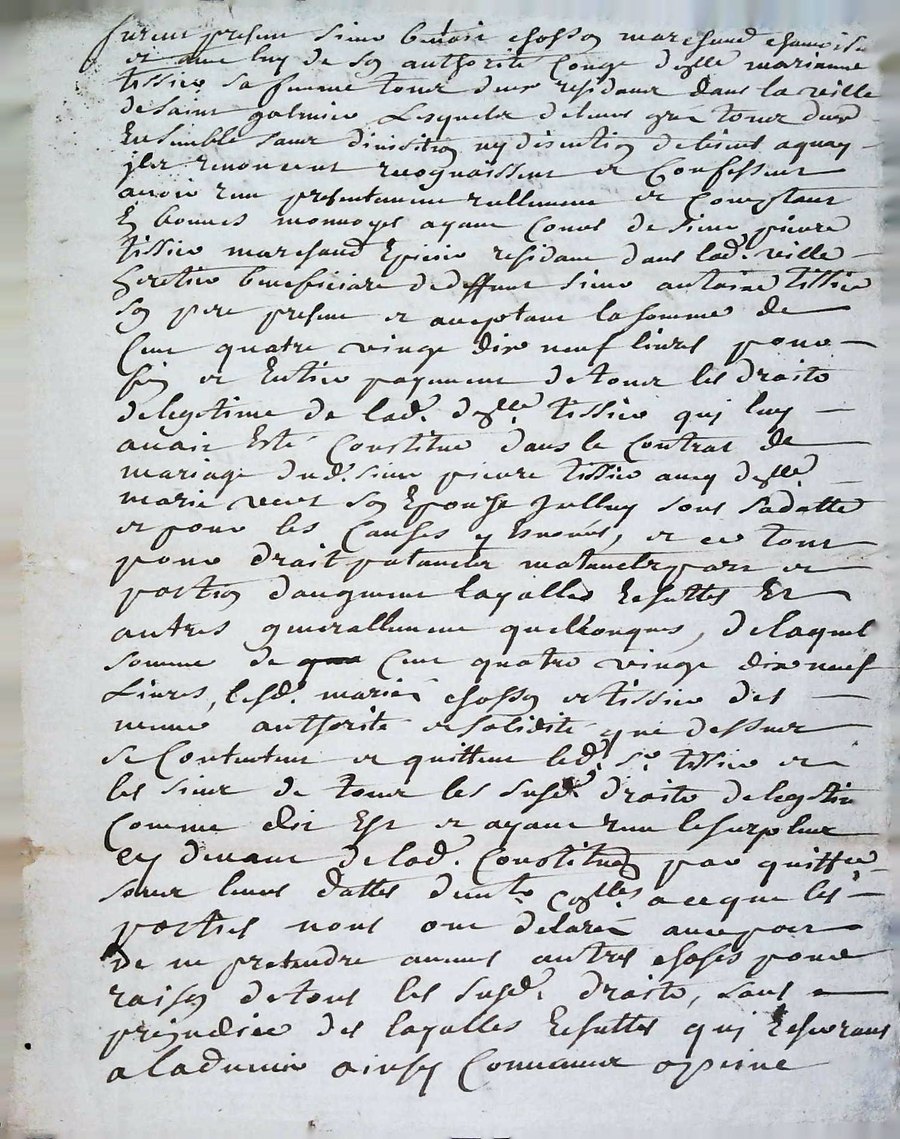 furent presents sieur benoist chosson marchand chamoise
et avec luy de son authorité conge d'elle marianne
tissier sa femme tous deux residants dans la ville
de saint galmier Lesquels deleurs gre tous deux
Ensemble sans division ny discution de biens aquoy
ils renoncent recognaissent et Confessent
avoir reçu presentement reellement et Comptant
En bonnes monnoyes ayant Cours de sieur pierre
tissier marchand Epicier residant dans lad. ville
heretier beneficiaire de deffunt sieur antoine tissier
son pere present et acceptant la somme de
Cent quatre vingt dix neuf livres pour
fin et Entier payement de tous les droits
delegetime de lad. dlle tissier qui luy
avait Esté Constitué dans le Contrat de
mariage dud. sieur pierre tissier avec dlle
marie son Epouse sous sadatte
et pour les Causes y Enoncés, et ce tout
pour droit paternelet maternelet part et
portion daugment layalles Echuttes Et
autres generallement quelconques, delaquel
somme de Cent quatre vingt dix neuf
Livres, lesd. mariés chosson et tissier des
meme authorité et solidité que dessus
se Contentent et quittent led. sr. tissier et
les siens de tous les susd. droits delegetime
Comme dit Est et ayant reçu le surplus
cy devant de lad. Constitution par quittce
sous leurs dattes a ce que les
parties nous ont delaré avec pacte
De ne pretendre aucuns autres choses pour
raison detous les susd. droits, sans
prejudice des layalles Echuttes qui Echevrons
a ladvenir ainsy Convenus apeine